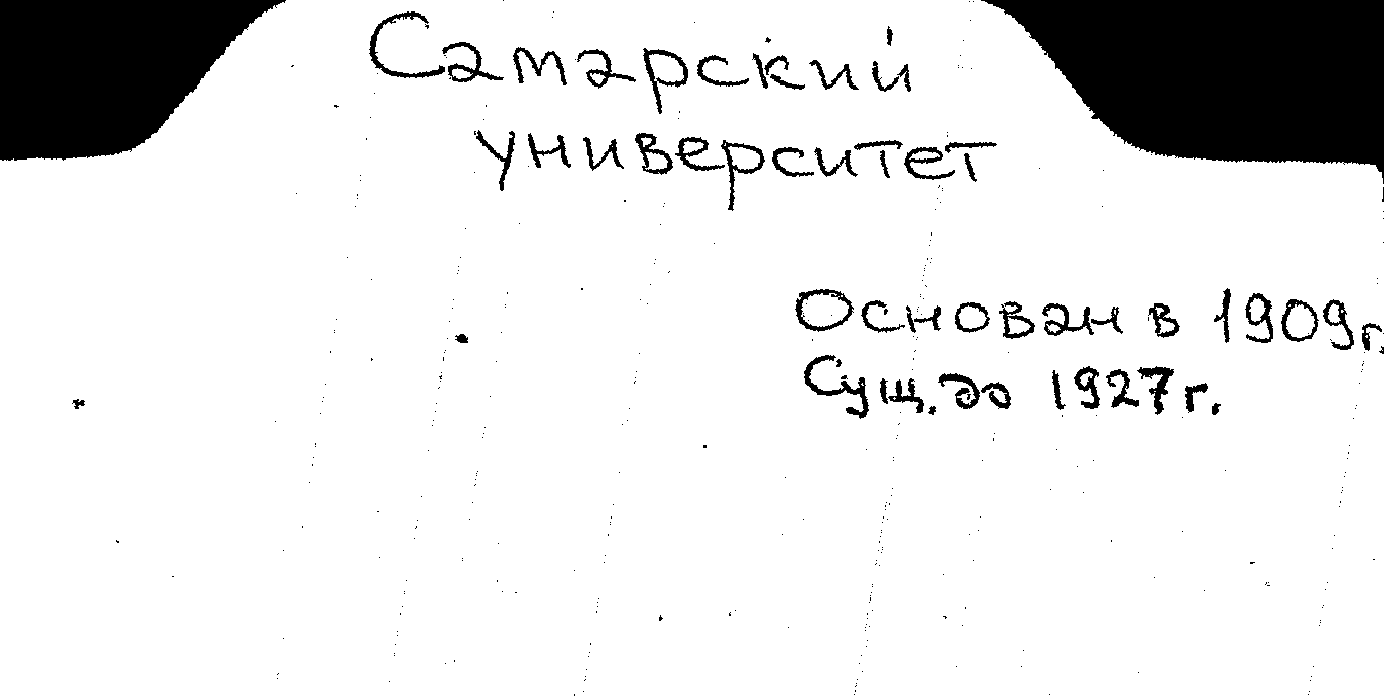 Самарский
университет
Основан в 1909г.
Сущ. до 1927г.